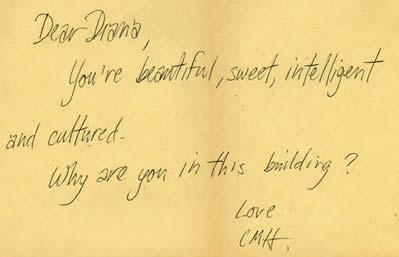 Dear Diana,
You're beautiful, sweet, intelligent
and cultured.
Why are you in this building?
Love
CMH.